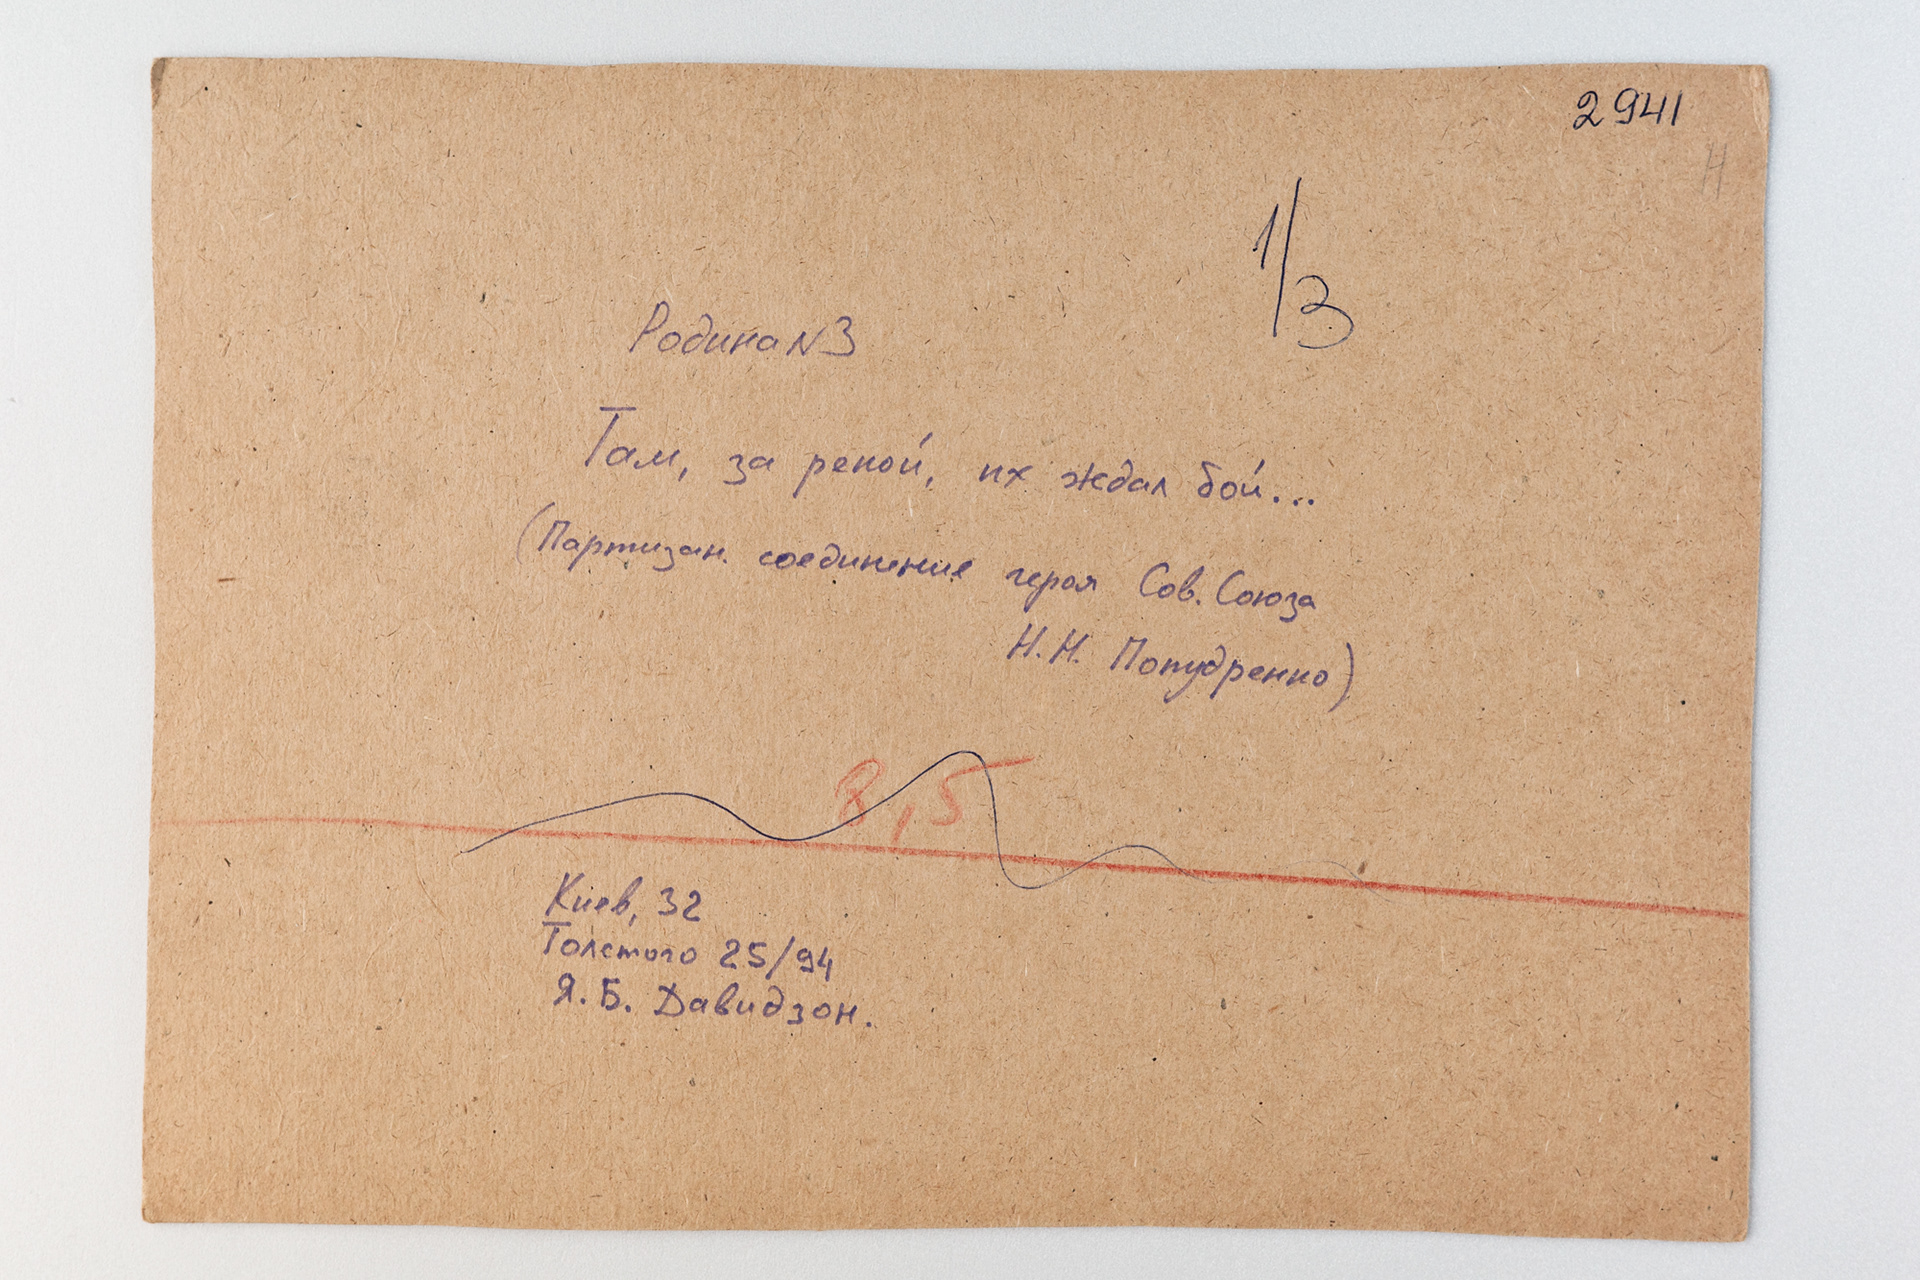 2941
Н
1/3
Родина N3
Там, за рекой, их ждал бой...
(Партизан. соединение героя Сов. Союза
Н.Н. Попудренко)
8,5
Киев, 32
Толстого 25/94
Я.Б. Давидзон.